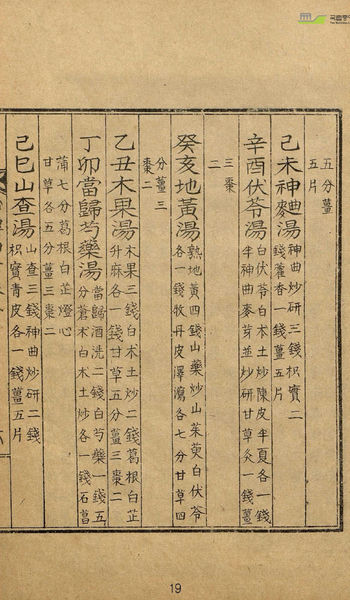 五分薑
五片
己未神麯湯
神曲炒研三錢枳實二
錢藿香一錢薑五片
辛酉伏苓湯
白伏苓白朮土炒陳皮半夏各一錢
半神曲麥芽並炒研甘草灸一錢薑
三棗
二
癸亥地黃湯
熟地黃四錢山藥炒山茱萸白伏苓
各一錢牧丹皮澤瀉各七分甘草四
分薑三
棗二
乙丑木果湯
木果三錢白朮土炒二錢葛根白芷
升麻各一錢甘草五分薑三棗二
丁卯當歸芍藥湯
當歸酒洗二錢白芍藥一錢五
分蒼朮白朮土炒各一錢石菖
蒲七分葛根白芷燈心
甘草各五分薑三棗二
己巳山査湯
山査三錢神曲炒研二錢
枳實青皮各一錢薑五片
19